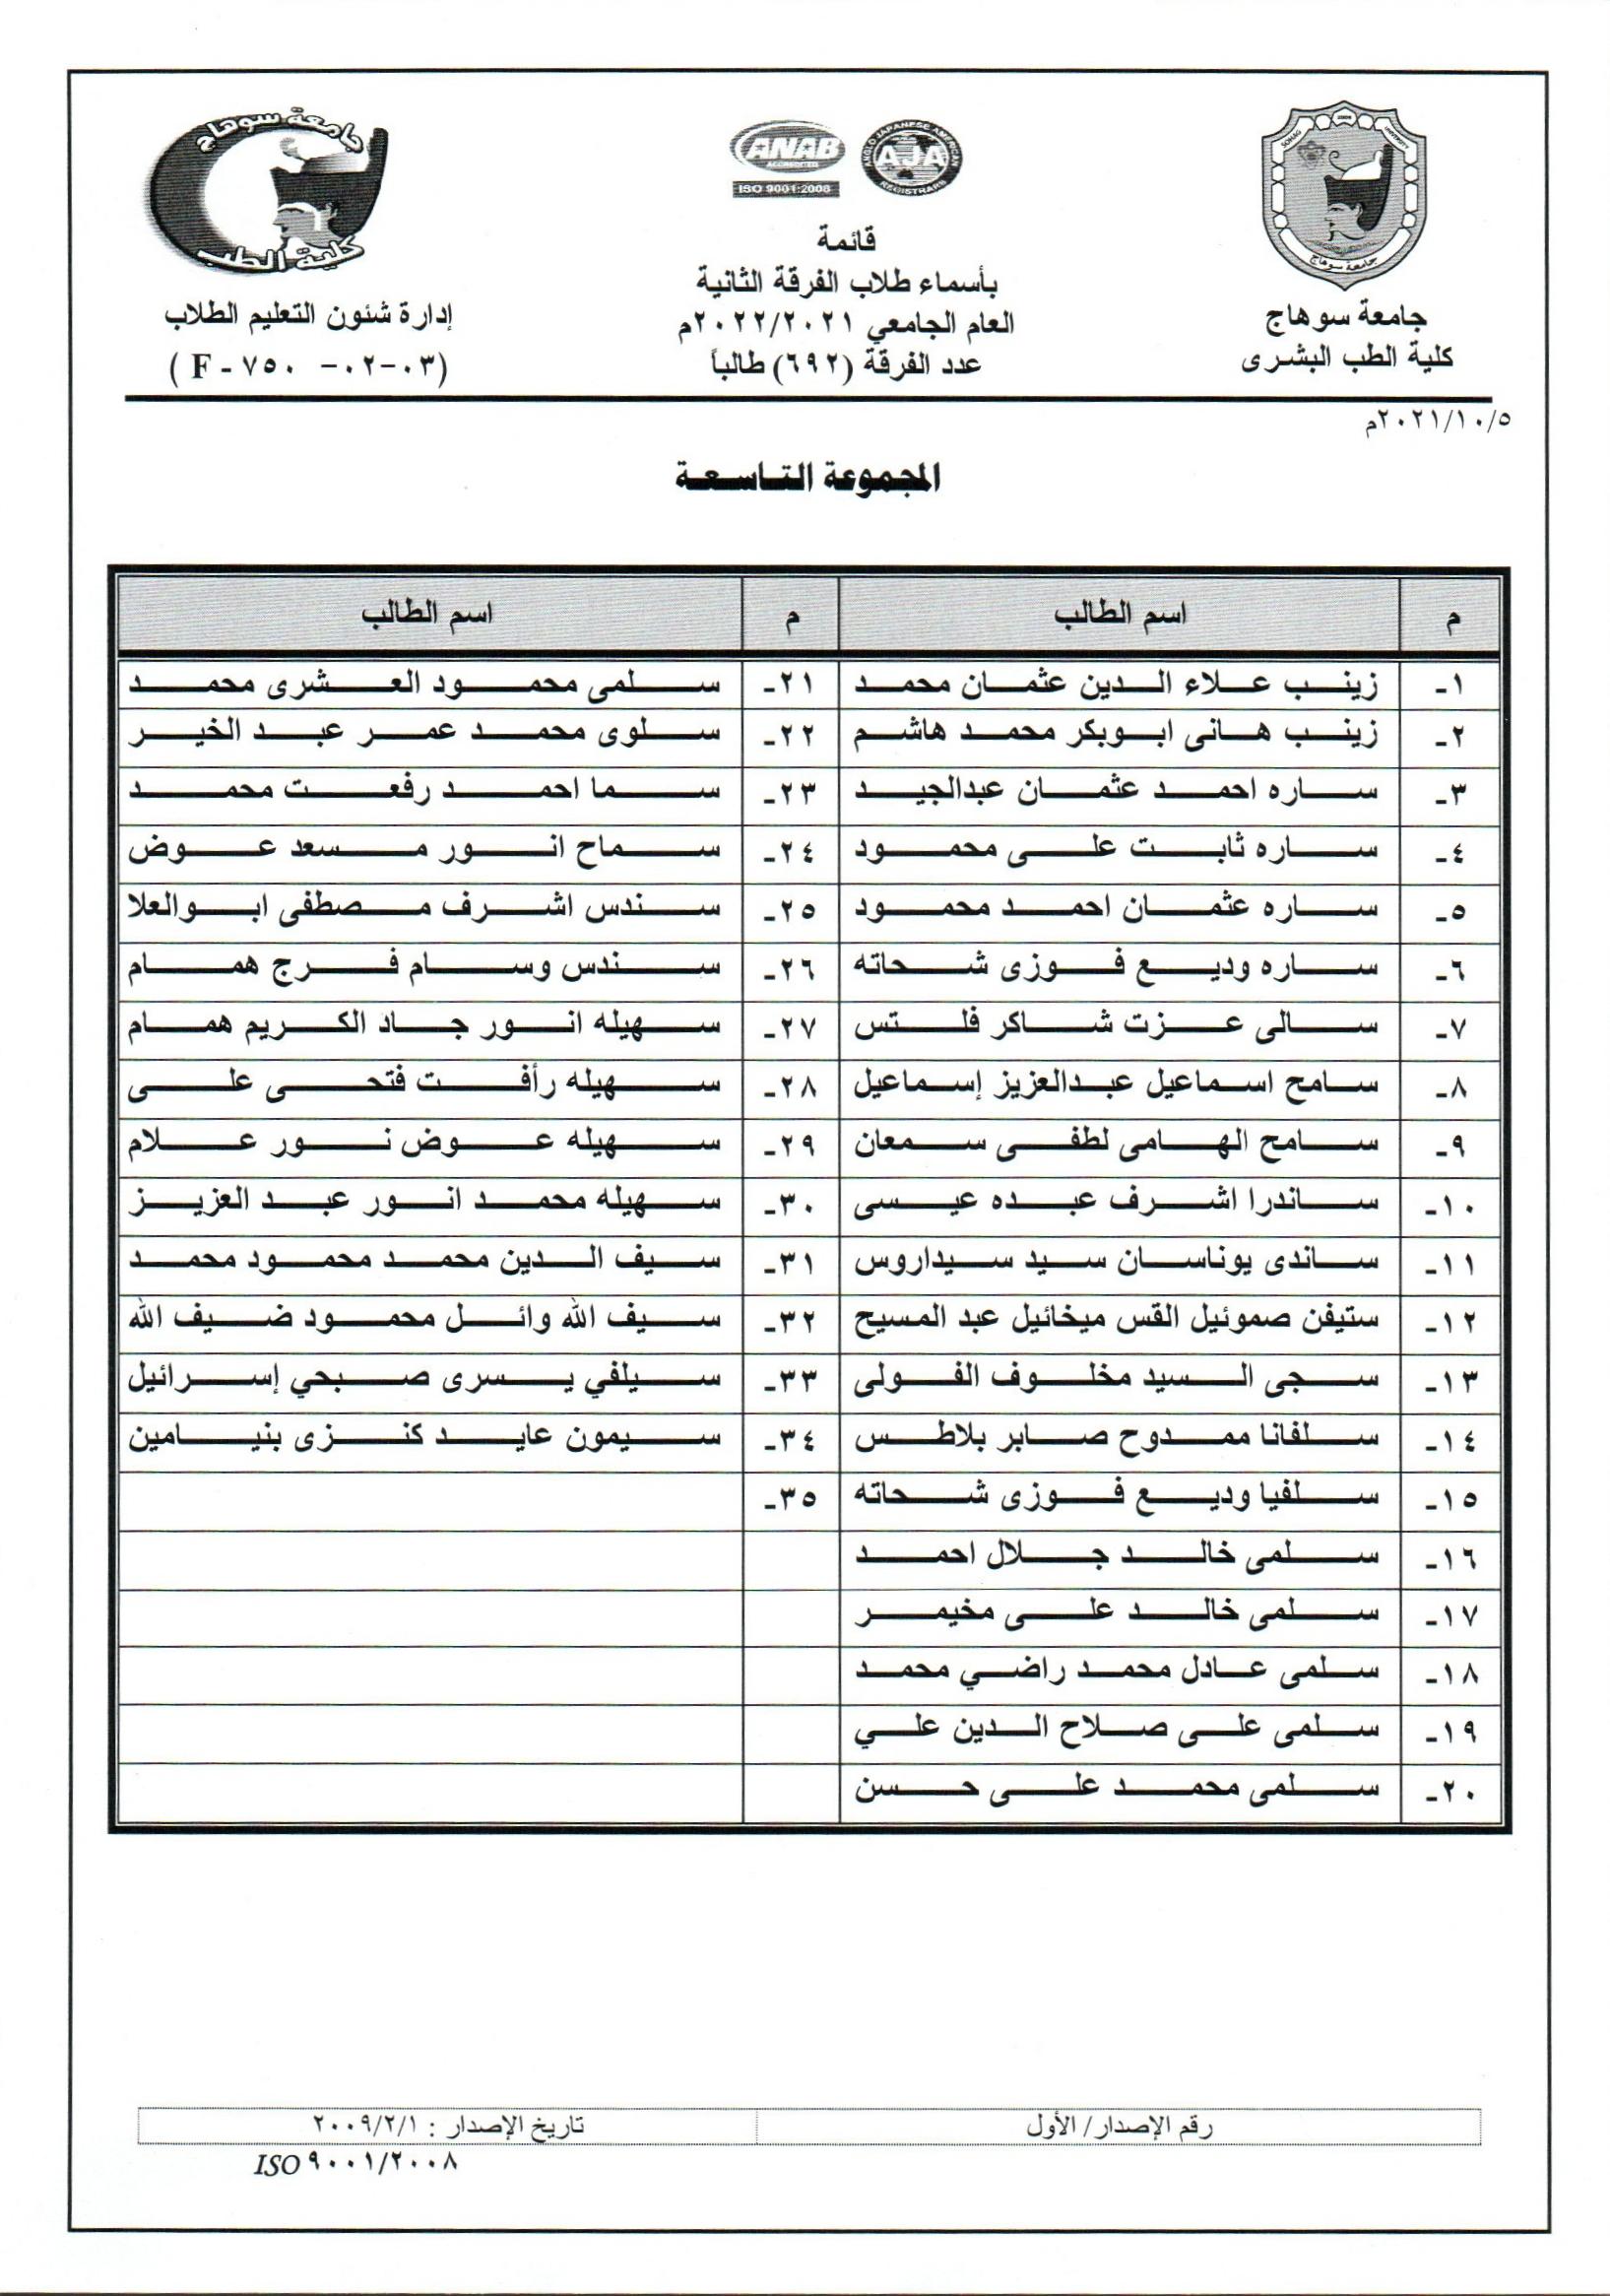 جامعة سوهاج
كلية الطب
ANAB
ACCREDITED
ISO 9001:2008
ANGLO JAPANESE AMERICAN
AJA
REGISTRARS
SOHAG 2006 UNIVERSITY
جامعة سوهاج
جامعة سوهاج
كلية الطب البشرى
قائمة
بأسماء طلاب الفرقة الثانية
العام الجامعي ٢٠٢٢/٢٠٢١م
عدد الفرقة (٦٩٢) طالباً
إدارة شئون التعليم الطلاب
(٠٣-٠٢- ٧٥٠ - F )
٢٠٢١/١٠/٥م
المجموعة التاسعة
م اسم الطالب م اسم الطالب
١- زينب علاء الدين عثمان محمد ٢١- سلمى محمود العشرى محمد
٢- زينب هانى ابوبكر محمد هاشم ٢٢- سلوى محمد عمر عبد الخير
٣- ساره احمد عثمان عبدالجيد ٢٣- سما احمد رفعت محمد
٤- ساره ثابت على محمود ٢٤- سماح انور مسعد عوض
٥- ساره عثمان احمد محمود ٢٥- سندس اشرف مصطفى ابوالعلا
٦- ساره وديع فوزى شحاته ٢٦- سندس وسام فرج همام
٧- سالى عزت شاكر فلتس ٢٧- سهيله انور جاد الكريم همام
٨- سامح اسماعيل عبدالعزيز إسماعيل ٢٨- سهيله رأفت فتحى على
٩- سامح الهامى لطفى سمعان ٢٩- سهيله عوض نور علام
١٠- ساندرا اشرف عبده عيسى ٣٠- سهيله محمد انور عبد العزيز
١١- ساندى يوناسان سيد سيداروس ٣١- سيف الدين محمد محمود محمد
١٢- ستيفن صموئيل القس ميخائيل عبد المسيح ٣٢- سيف الله وائل محمود ضيف الله
١٣- سجى السيد مخلوف الفولى ٣٣- سيلفي يسرى صبحي إسرائيل
١٤- سلفانا ممدوح صابر بلاطس ٣٤- سيمون عايد كنزى بنيامين
١٥- سلفيا وديع فوزى شحاته ٣٥-
١٦- سلمى خالد جلال احمد
١٧- سلمى خالد على مخيمر
١٨- سلمى عادل محمد راضي محمد
١٩- سلمى على صلاح الدين علي
٢٠- سلمى محمد على حسن
رقم الإصدار/ الأول تاريخ الإصدار : ٢٠٠٩/٢/١
ISO ٩٠٠١/٢٠٠٨